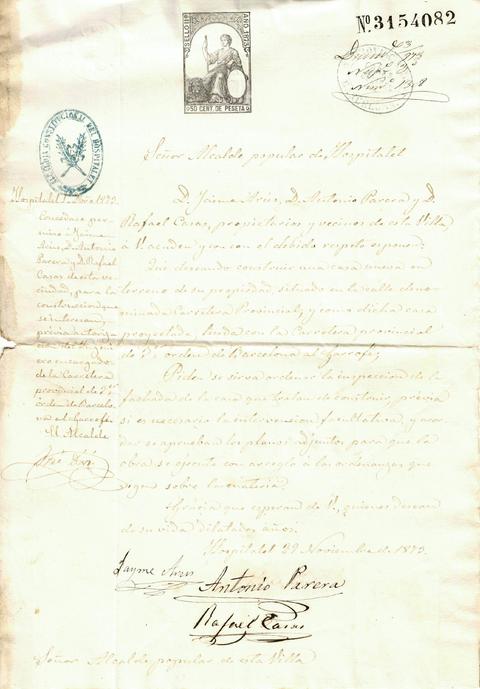 SELLO 11º AÑO 1873
50 CENT. DE PESETA
Nº 3154082
ALCALDIA CONSTITUCIONAL DEL HOSPITALET
Señor Alcalde popular de Hospitalet
D. Jaime Arús, D. Antonio Parera y D.
Rafael Casas, propietarios y vecinos de esta Villa
á V. acuden y con el debido respeto exponen:
Que deseando construir una casa nueva en
terreno de su propiedad situado en la calle deno-
minada Carretera Provincial, y como dicha casa
proyectada linda con la Carretera provincial
de 2º orden de Barcelona al Garrafe;
Piden se sirva ordenar la inspeccion de la
fachada de la casa que tratan de construir, previa
si es necesaria la intervencion facultativa, y acor-
dar se aprueban los planos adjuntos para que la
obra se ejecute con arreglo á las ordenanzas que
rigen sobre la materia.
Gracia que esperan de V., quienes desean
de su vida dilatados años.
Hospitalet 29 Noviembre de 1873.
Jayme Arús
Antonio Parera
Rafael Casas
Señor Alcalde popular de esta Villa
Hospitalet 1873.
Concedase per-
miso á Jaime
Arús, D. Antonio
Parera y D. Rafael
Casas de esta ve-
cindad, para la
construccion que
se interesan,
previa autoriza-
cion del
encargado
de la Carretera
provincial de 2º
órden de Barcelo-
na al Garrafe.
El Alcalde